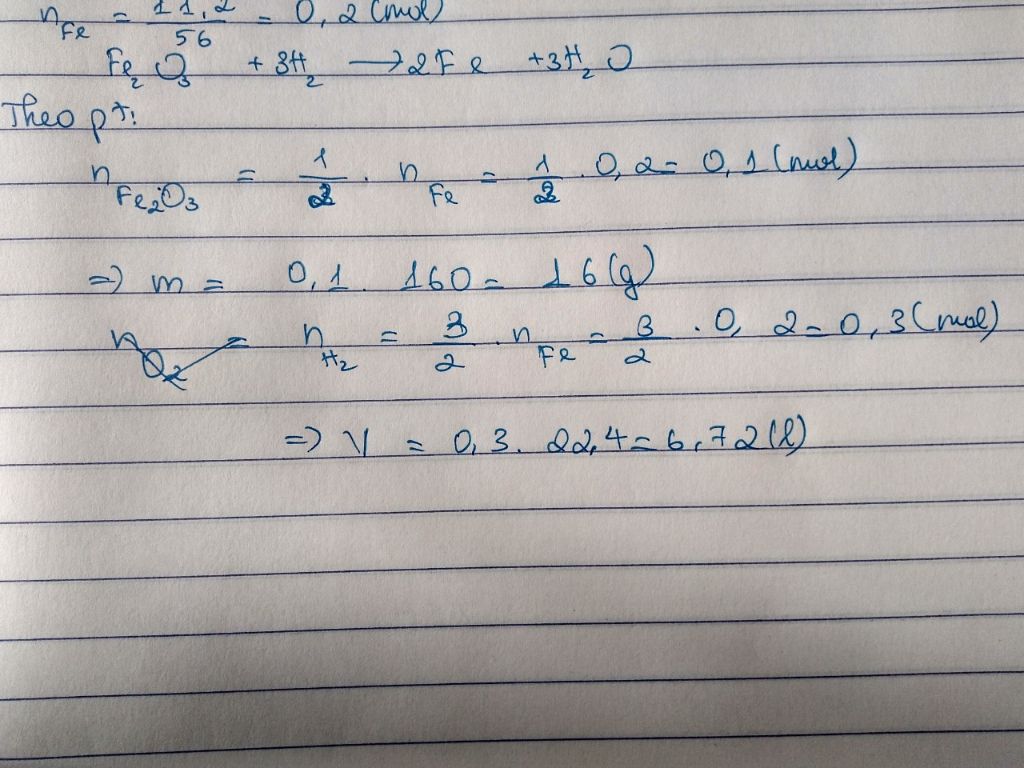 n Fe = 11,2/56 = 0,2 (mol)
Fe2O3 + 3H2 → 2Fe + 3H2O
Theo pt:
n Fe2O3 = 1/2 . n Fe = 1/2 . 0,2 = 0,1 (mol)
=> m = 0,1 . 160 = 16 (g)
n O2 = n H2 = 3/2 . n Fe = 3/2 . 0,2 = 0,3 (mol)
=> V = 0,3 . 22,4 = 6,72 (l)